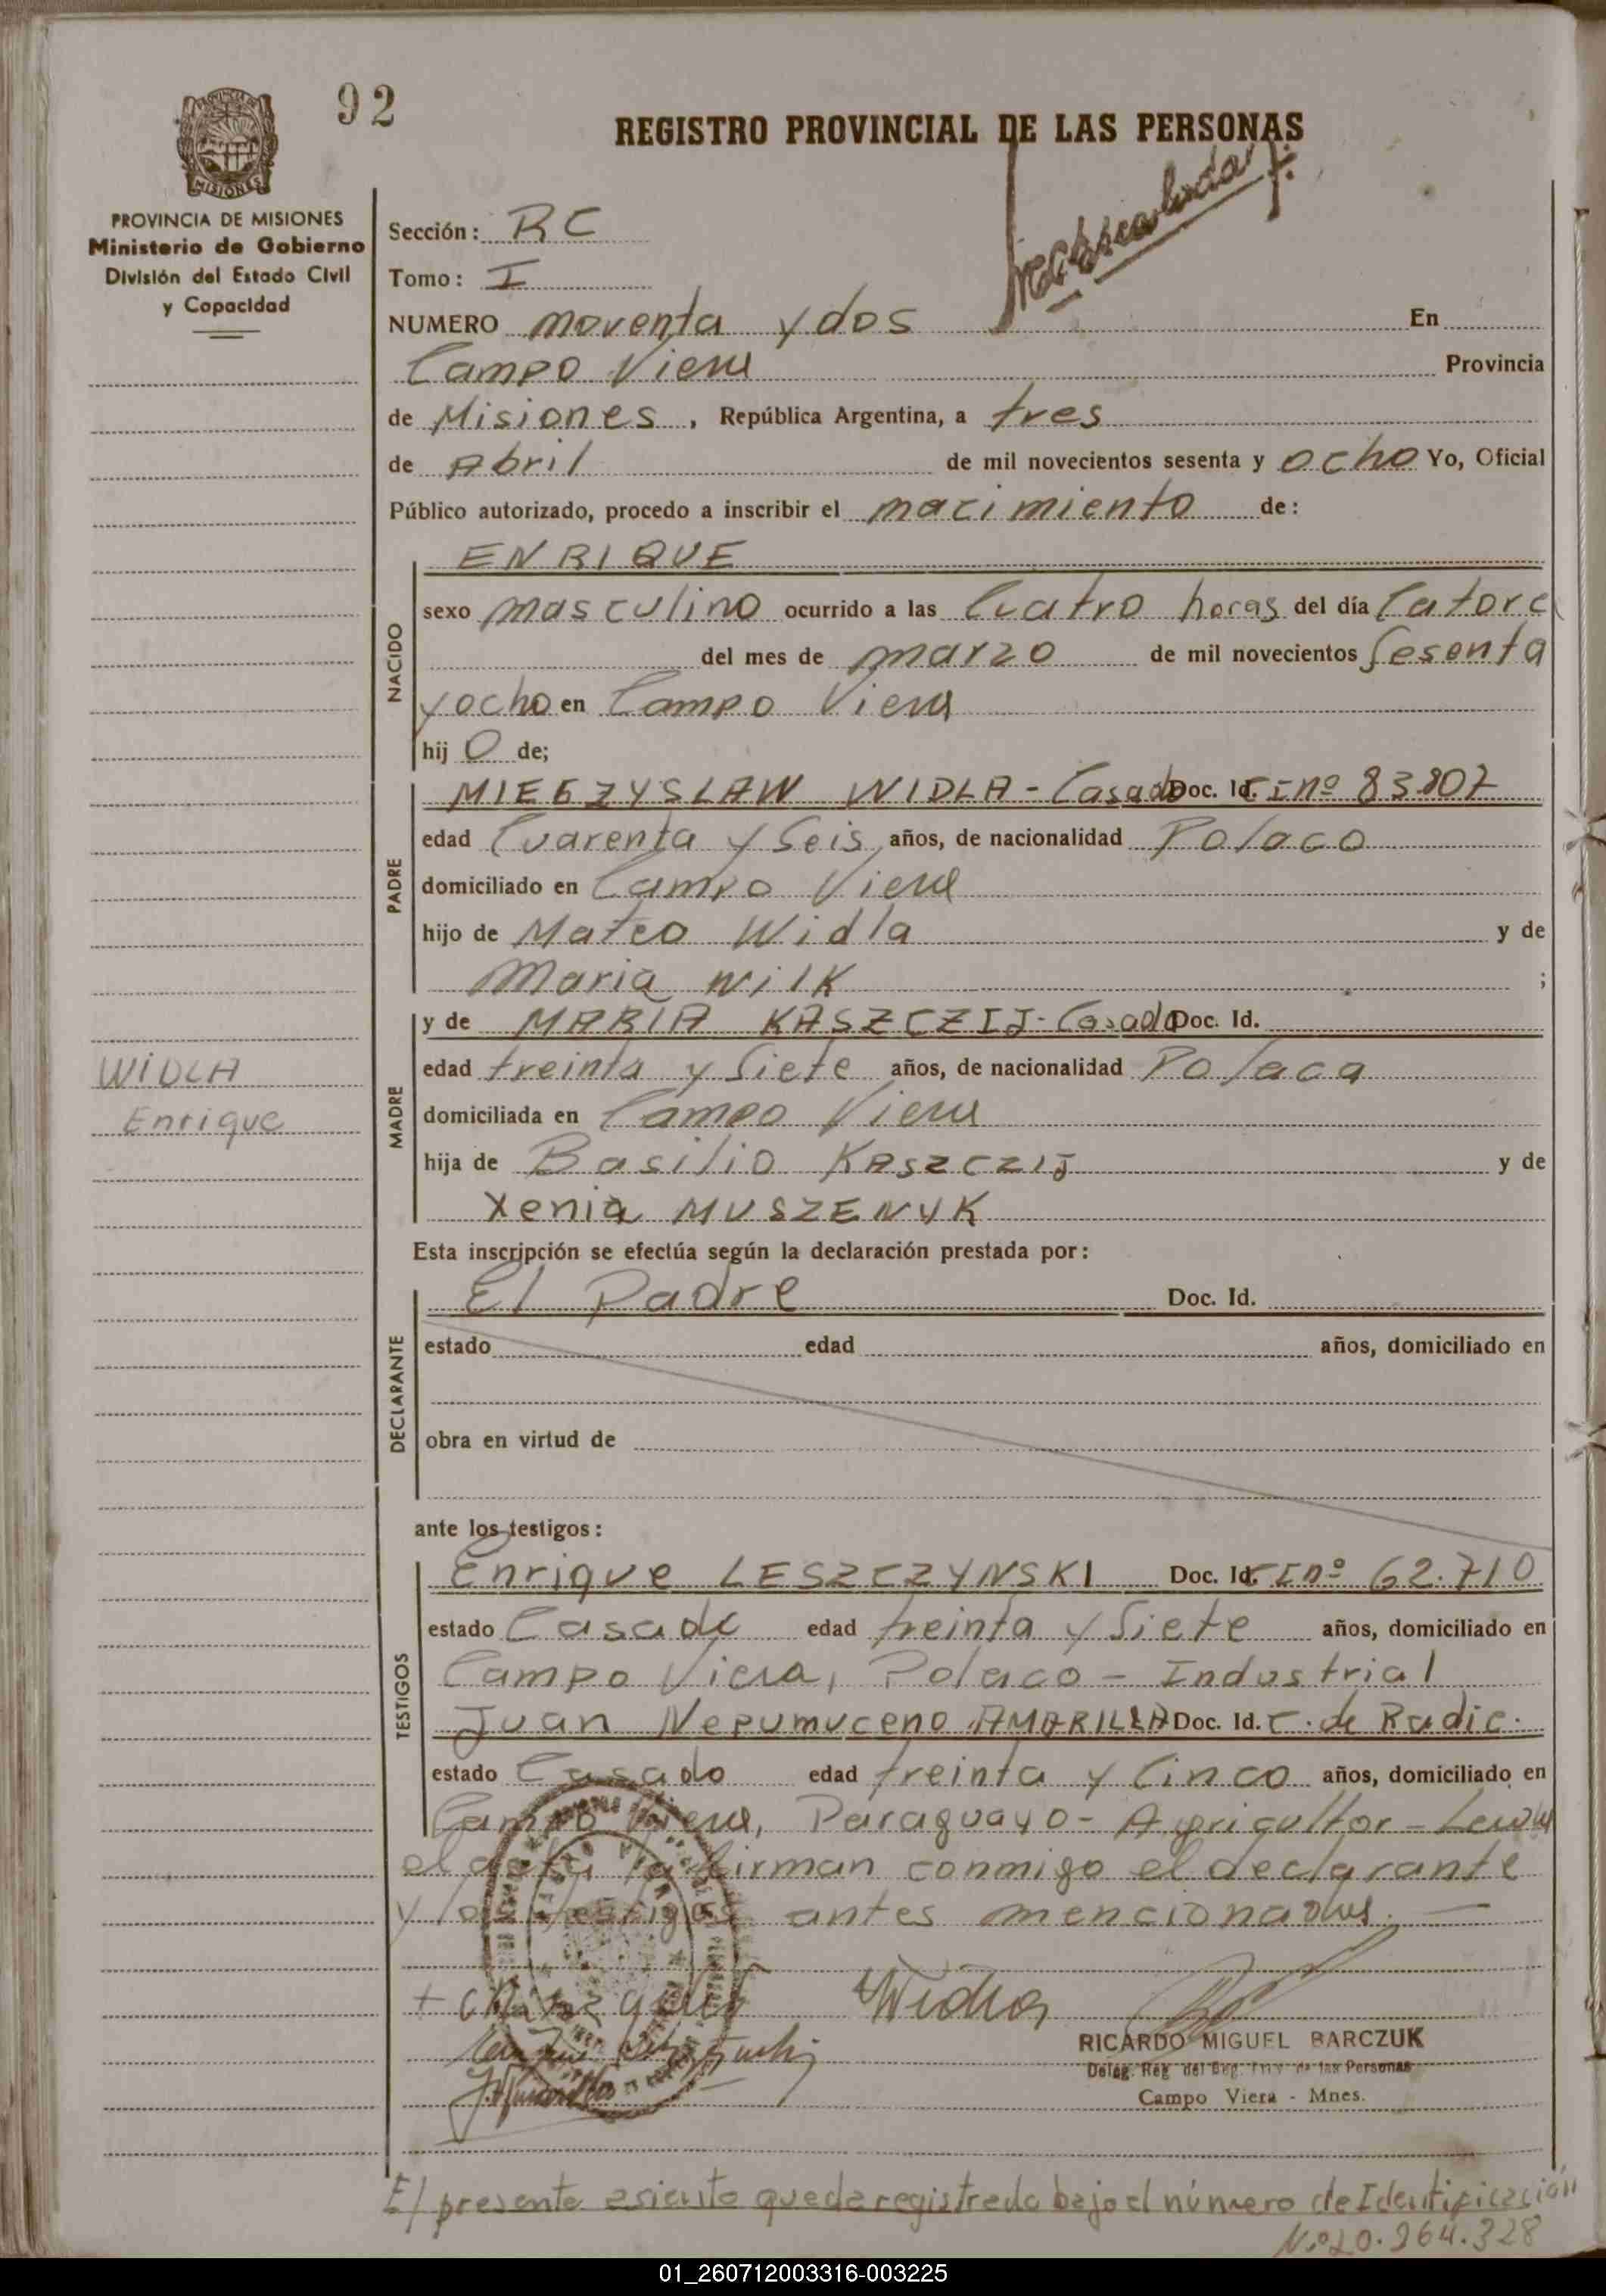 92
REGISTRO PROVINCIAL DE LAS PERSONAS
PROVINCIA DE MISIONES
Ministerio de Gobierno
División del Estado Civil
y Capacidad
Sección: RC
Tomo: I
NUMERO noventa y dos En
Campo Viera Provincia
de Misiones, República Argentina, a tres
de Abril de mil novecientos sesenta y ocho Yo, Oficial
Público autorizado, procedo a inscribir el nacimiento de:
ENRIQUE
NACIDO
sexo masculino ocurrido a las Cuatro horas del día Catorce
del mes de marzo de mil novecientos Sesenta
y ocho en Campo Viera
hij o de;
PADRE
MIECZYSLAW WIDLA - Casado Doc. Id. CI nº 83.807
edad Cuarenta y Seis años, de nacionalidad Polaco
domiciliado en Campo Viera
hijo de Mateo Widla y de
Maria Wilk ;
MADRE
y de MARIA KASZCZIJ - Casada Doc. Id.
edad treinta y Siete años, de nacionalidad Polaca
WIDLA
domiciliada en Campo Viera
Enrique
hija de Basilio KASZCZIJ y de
Xenia MUSZENYK
Esta inscripción se efectúa según la declaración prestada por:
DECLARANTE
El Padre Doc. Id.
estado edad años, domiciliado en
obra en virtud de
ante los testigos:
TESTIGOS
Enrique LESZCZYNSKI Doc. Id. CI nº 62.710
estado Casado edad treinta y Siete años, domiciliado en
Campo Viera, Polaco - Industrial
Juan Nepumuceno AMARILLA Doc. Id. C. de Radic.
estado Casado edad treinta y Cinco años, domiciliado en
Campo Viera, Paraguayo - Agricultor -
el acta la firman conmigo el declarante
y los testigos antes mencionados. —
Widla
RICARDO MIGUEL BARCZUK
Deleg. Reg. del Reg. Prov. de las Personas
Campo Viera - Mnes.
El presente asiento queda registrado bajo el número de Identificación
N.º 20.264.328
01_260712003316-003225